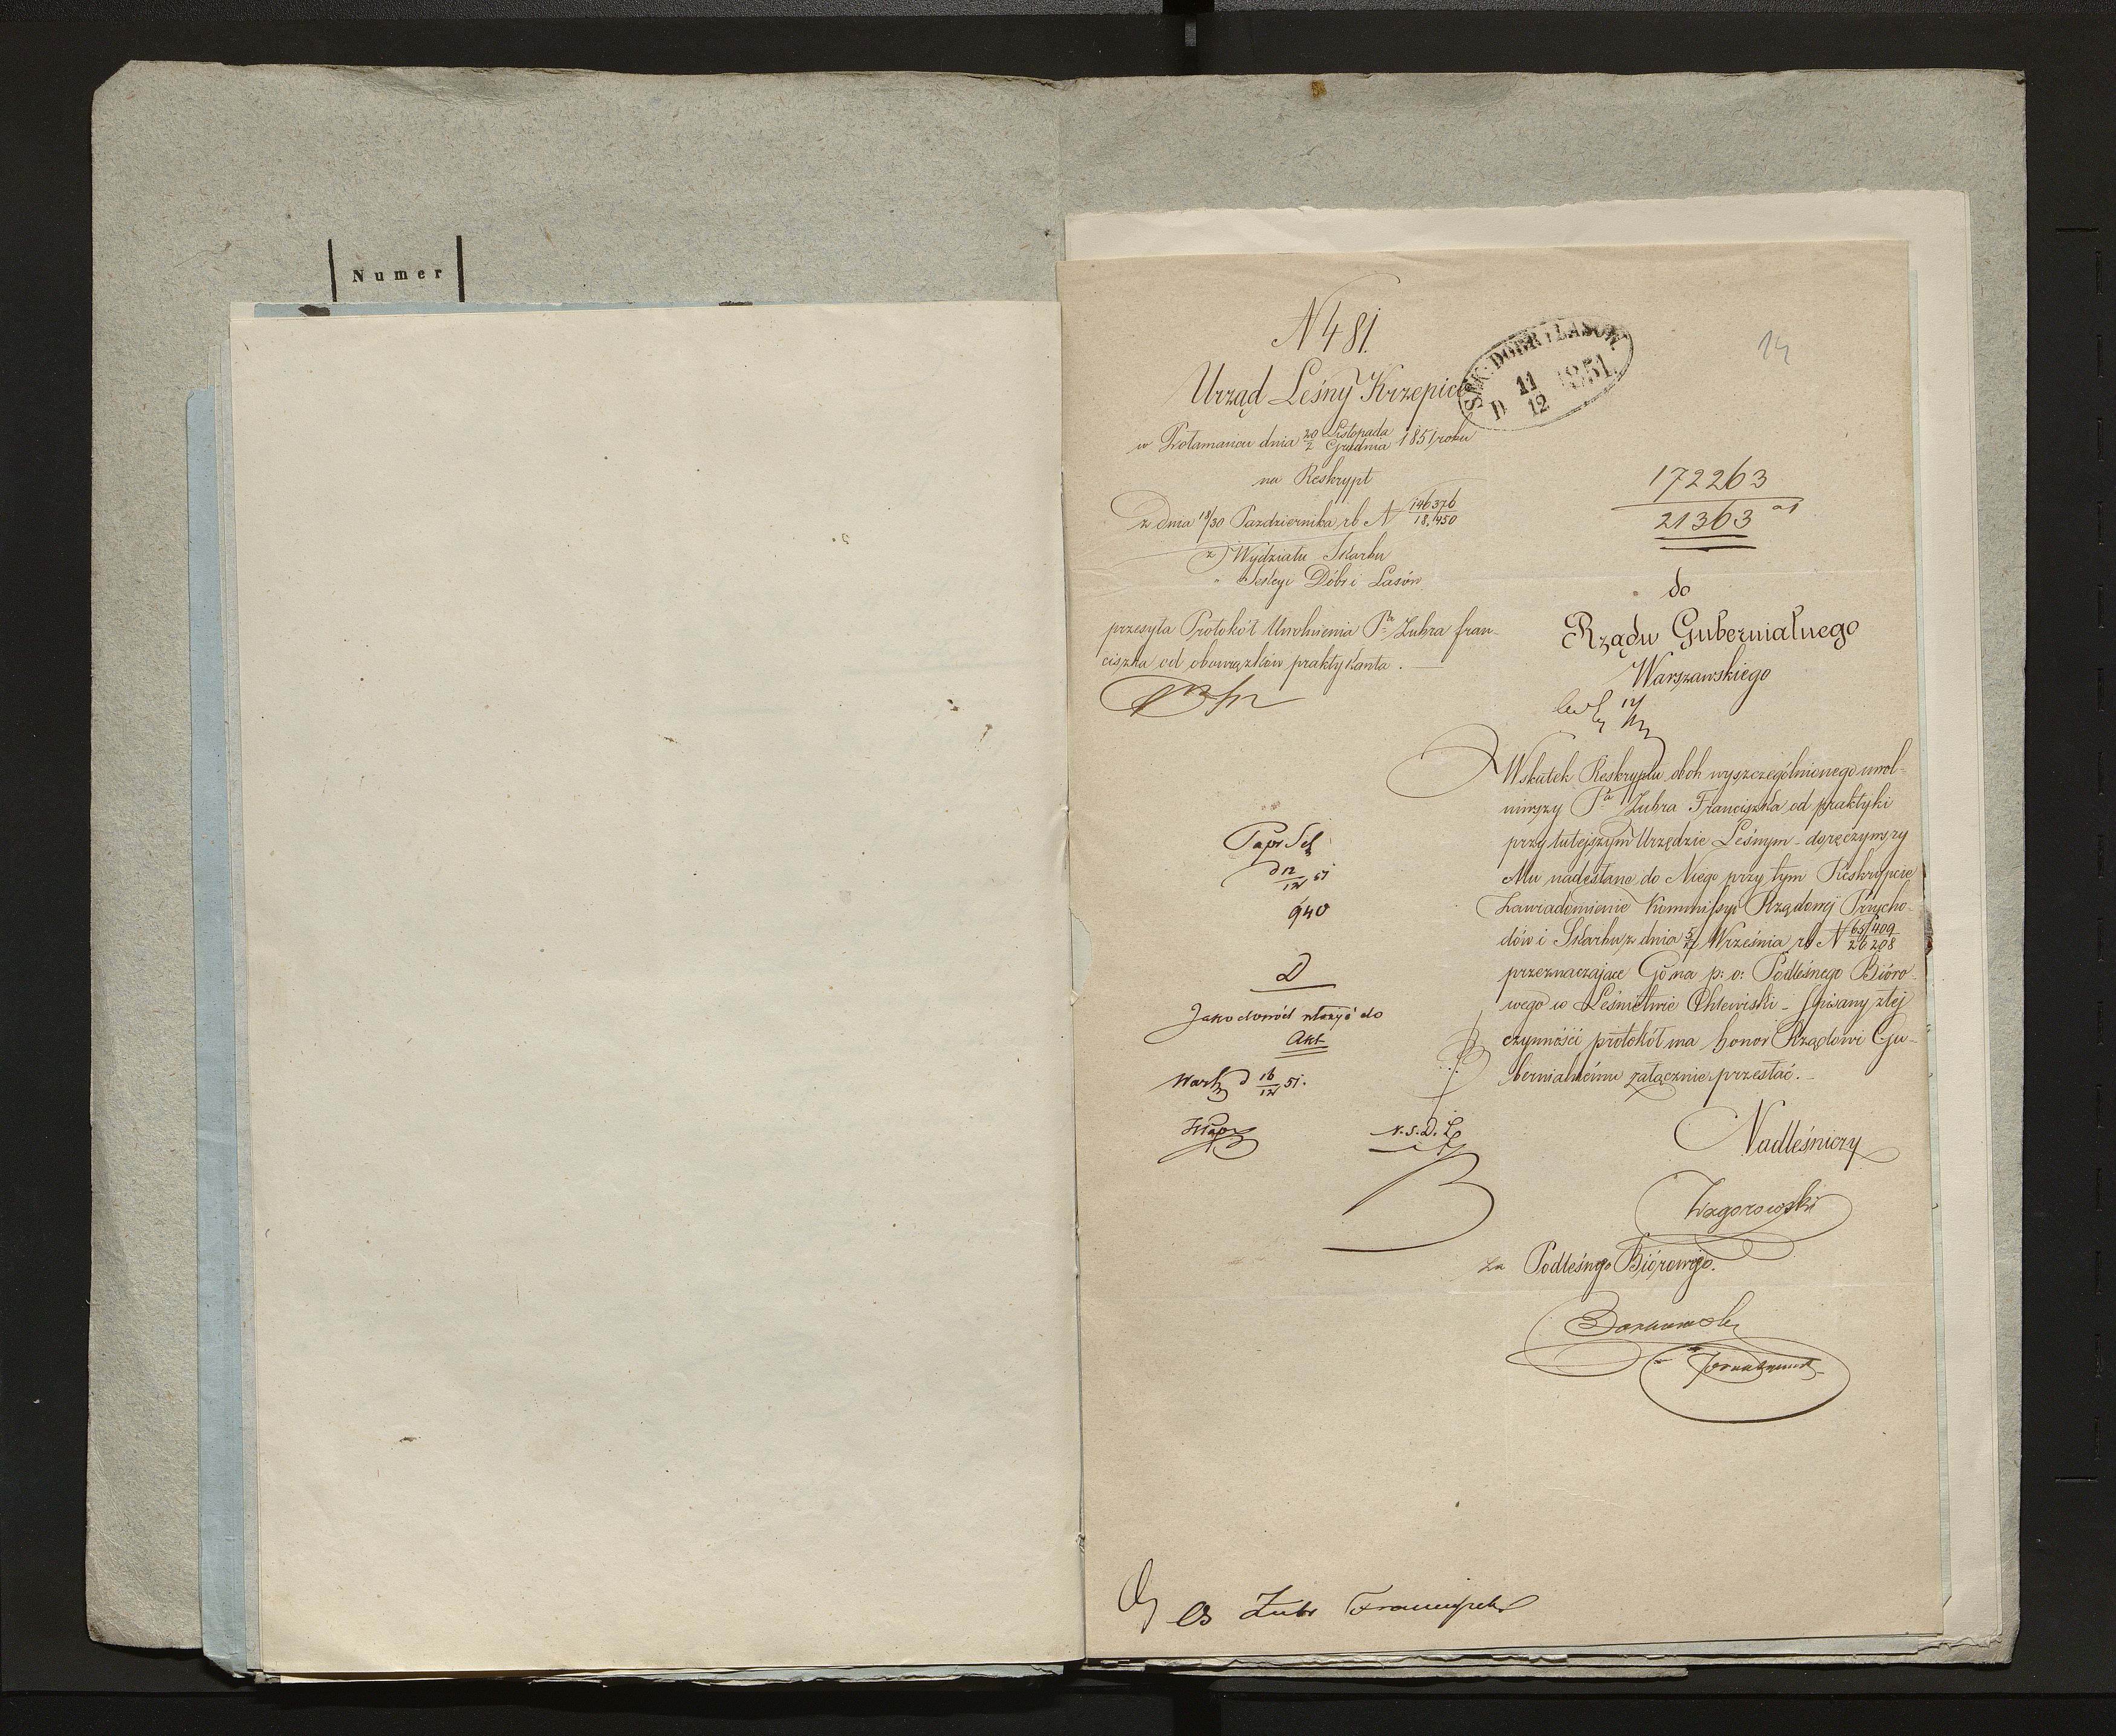 Numer
N 481.
Urząd Leśny Krzepice
SEK: DOBR I LASÓW
D 11/12 1851
14
w dnia 20 Listopada / 2 Grudnia 1851 roku
na Reskrypt
z dnia 18/30 Pazdziernika rb N 146376/18,450
z Wydziału Skarbu
" Sekcyi Dóbr i Lasów
172263
21363
przesyła Protokół Uwolnienia Pa Zubra Fran-
ciszka od obowiązków praktykanta. —
do
Rządu Gubernialnego
Warszawskiego
Wskutek Reskryptu obok wyszczególnionego uwol-
niwszy Pa Zubra Franciszka od praktyki
przy tutejszym Urzędzie Leśnym – doręczywszy
Mu nadesłane do Niego przy tym Reskrypcie
Zawiadomienie Kommissyi Rządowej Przycho-
dów i Skarbu z dnia Września rb N 65409/26208
przeznaczające Go na p: o: Podleśnego Bióro-
wego w Leśnictwie Chlewiski – spisany z tej
czynności protokół ma honor Rządowi Gu-
bernialnemu załącznie przesłać. –
d 12/12 51
940
D
Jako dowód włożyć do
Akt
Warsz d 16/12 51.
N. S. D. L.
Nadleśniczy
Zagorowski
za Podleśnego Biórowego.
Zubr Franciszek